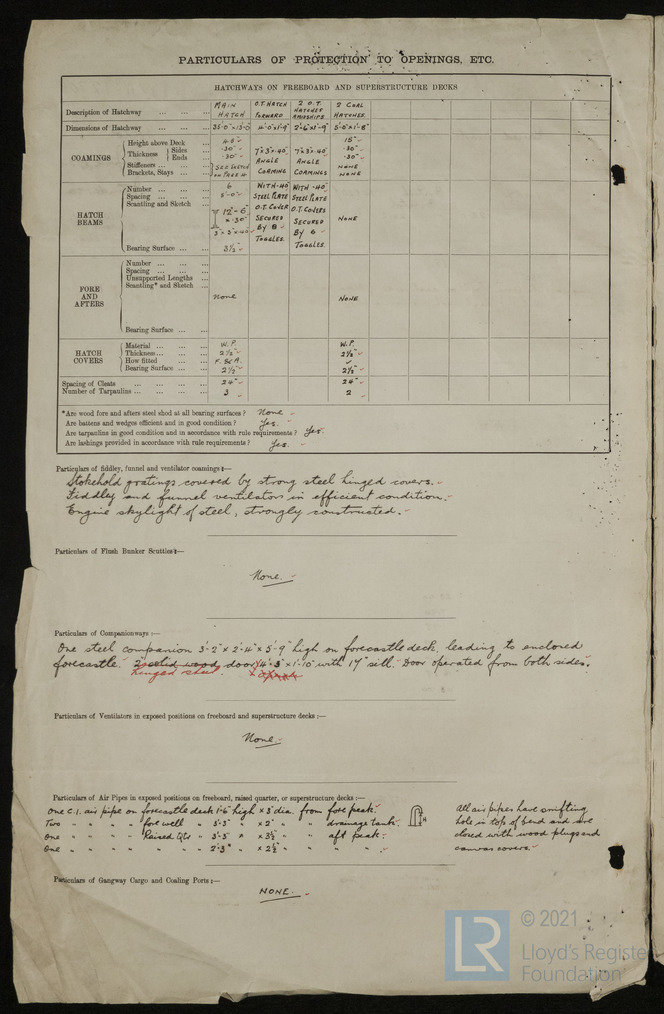 PARTICULARS OF PROTECTION TO OPENINGS, ETC.
HATCHWAYS ON FREEBOARD AND SUPERSTRUCTURE DECKS
Description of Hatchway ... ... ... MAIN HATCH O.T. HATCH FORWARD 2 O.T. HATCHES AMIDSHIPS 2 COAL HATCHES.
Dimensions of Hatchway ... ... ... 4'-0"x1'-9" 2'-6"x1'-9" 5'-0"x1'-8"
COAMINGS
Height above Deck ... 15"
Thickness Sides ... .30" 7"x3"x.40" 7"x3"x.40" .30"
Ends ... .30" ANGLE ANGLE .30"
Stiffeners ... ... SEE SKETCH COAMING COAMINGS NONE
Brackets, Stays ... ... ON PAGE NONE
HATCH BEAMS
Number ... ... ... 6 WITH .40" WITH .40"
Spacing ... ... ... 5'-0" STEEL PLATE STEEL PLATE
Scantling and Sketch ... O.T. COVER O.T. COVERS
12"-6" SECURED SECURED NONE
x .30" BY 8 BY 6
3"x3"x.40" TOGGLES. TOGGLES.
Bearing Surface ... ... 3½"
FORE AND AFTERS
Number ... ... ...
Spacing ... ... ...
Unsupported Lengths ...
Scantling* and Sketch ...
None NONE
Bearing Surface ... ...
HATCH COVERS
Material ... ... ... W.P. W.P.
Thickness ... ... ... 2½" 2½"
How fitted ... ... F. & A.
Bearing Surface ... ... 2½" 2½"
Spacing of Cleats ... ... ... ... 24" 24"
Number of Tarpaulins ... ... ... 3 2
*Are wood fore and afters steel shod at all bearing surfaces? None
Are battens and wedges efficient and in good condition? Yes.
Are tarpaulins in good condition and in accordance with rule requirements? Yes.
Are lashings provided in accordance with rule requirements? Yes.
Particulars of fiddley, funnel and ventilator coamings:—
Stokehold gratings covered by strong steel hinged covers.
Fiddley and funnel ventilators in efficient condition.
Engine skylight of steel, strongly constructed.
Particulars of Flush Bunker Scuttles:—
None.
Particulars of Companionways:—
One steel companion 3'-2" x 2'-4" x 5'-9" high on forecastle deck, leading to enclosed
forecastle. 2" solid wood door 4'-3" x 1'-10" with 17" sill. Door operated from both sides.
hinged steel.
Particulars of Ventilators in exposed positions on freeboard and superstructure decks:—
None.
Particulars of Air Pipes in exposed positions on freeboard, raised quarter, or superstructure decks:—
One C.I. air pipe on forecastle deck 1'-6" high x 3" dia. from fore peak.
Two " " " " fore well " 3'-3" " x 2" " " drainage tank.
One " " " " Raised Qtr " 3'-3" " x 3½" " " aft peak.
One " " " " " " " 2'-3" " x 2½" " " " "
H
All air pipes have snifting
hole in top of bend and are
closed with wood plugs and
canvas covers.
Particulars of Gangway Cargo and Coaling Ports:—
NONE.
LR
© 2021
Lloyd's Register
Foundation